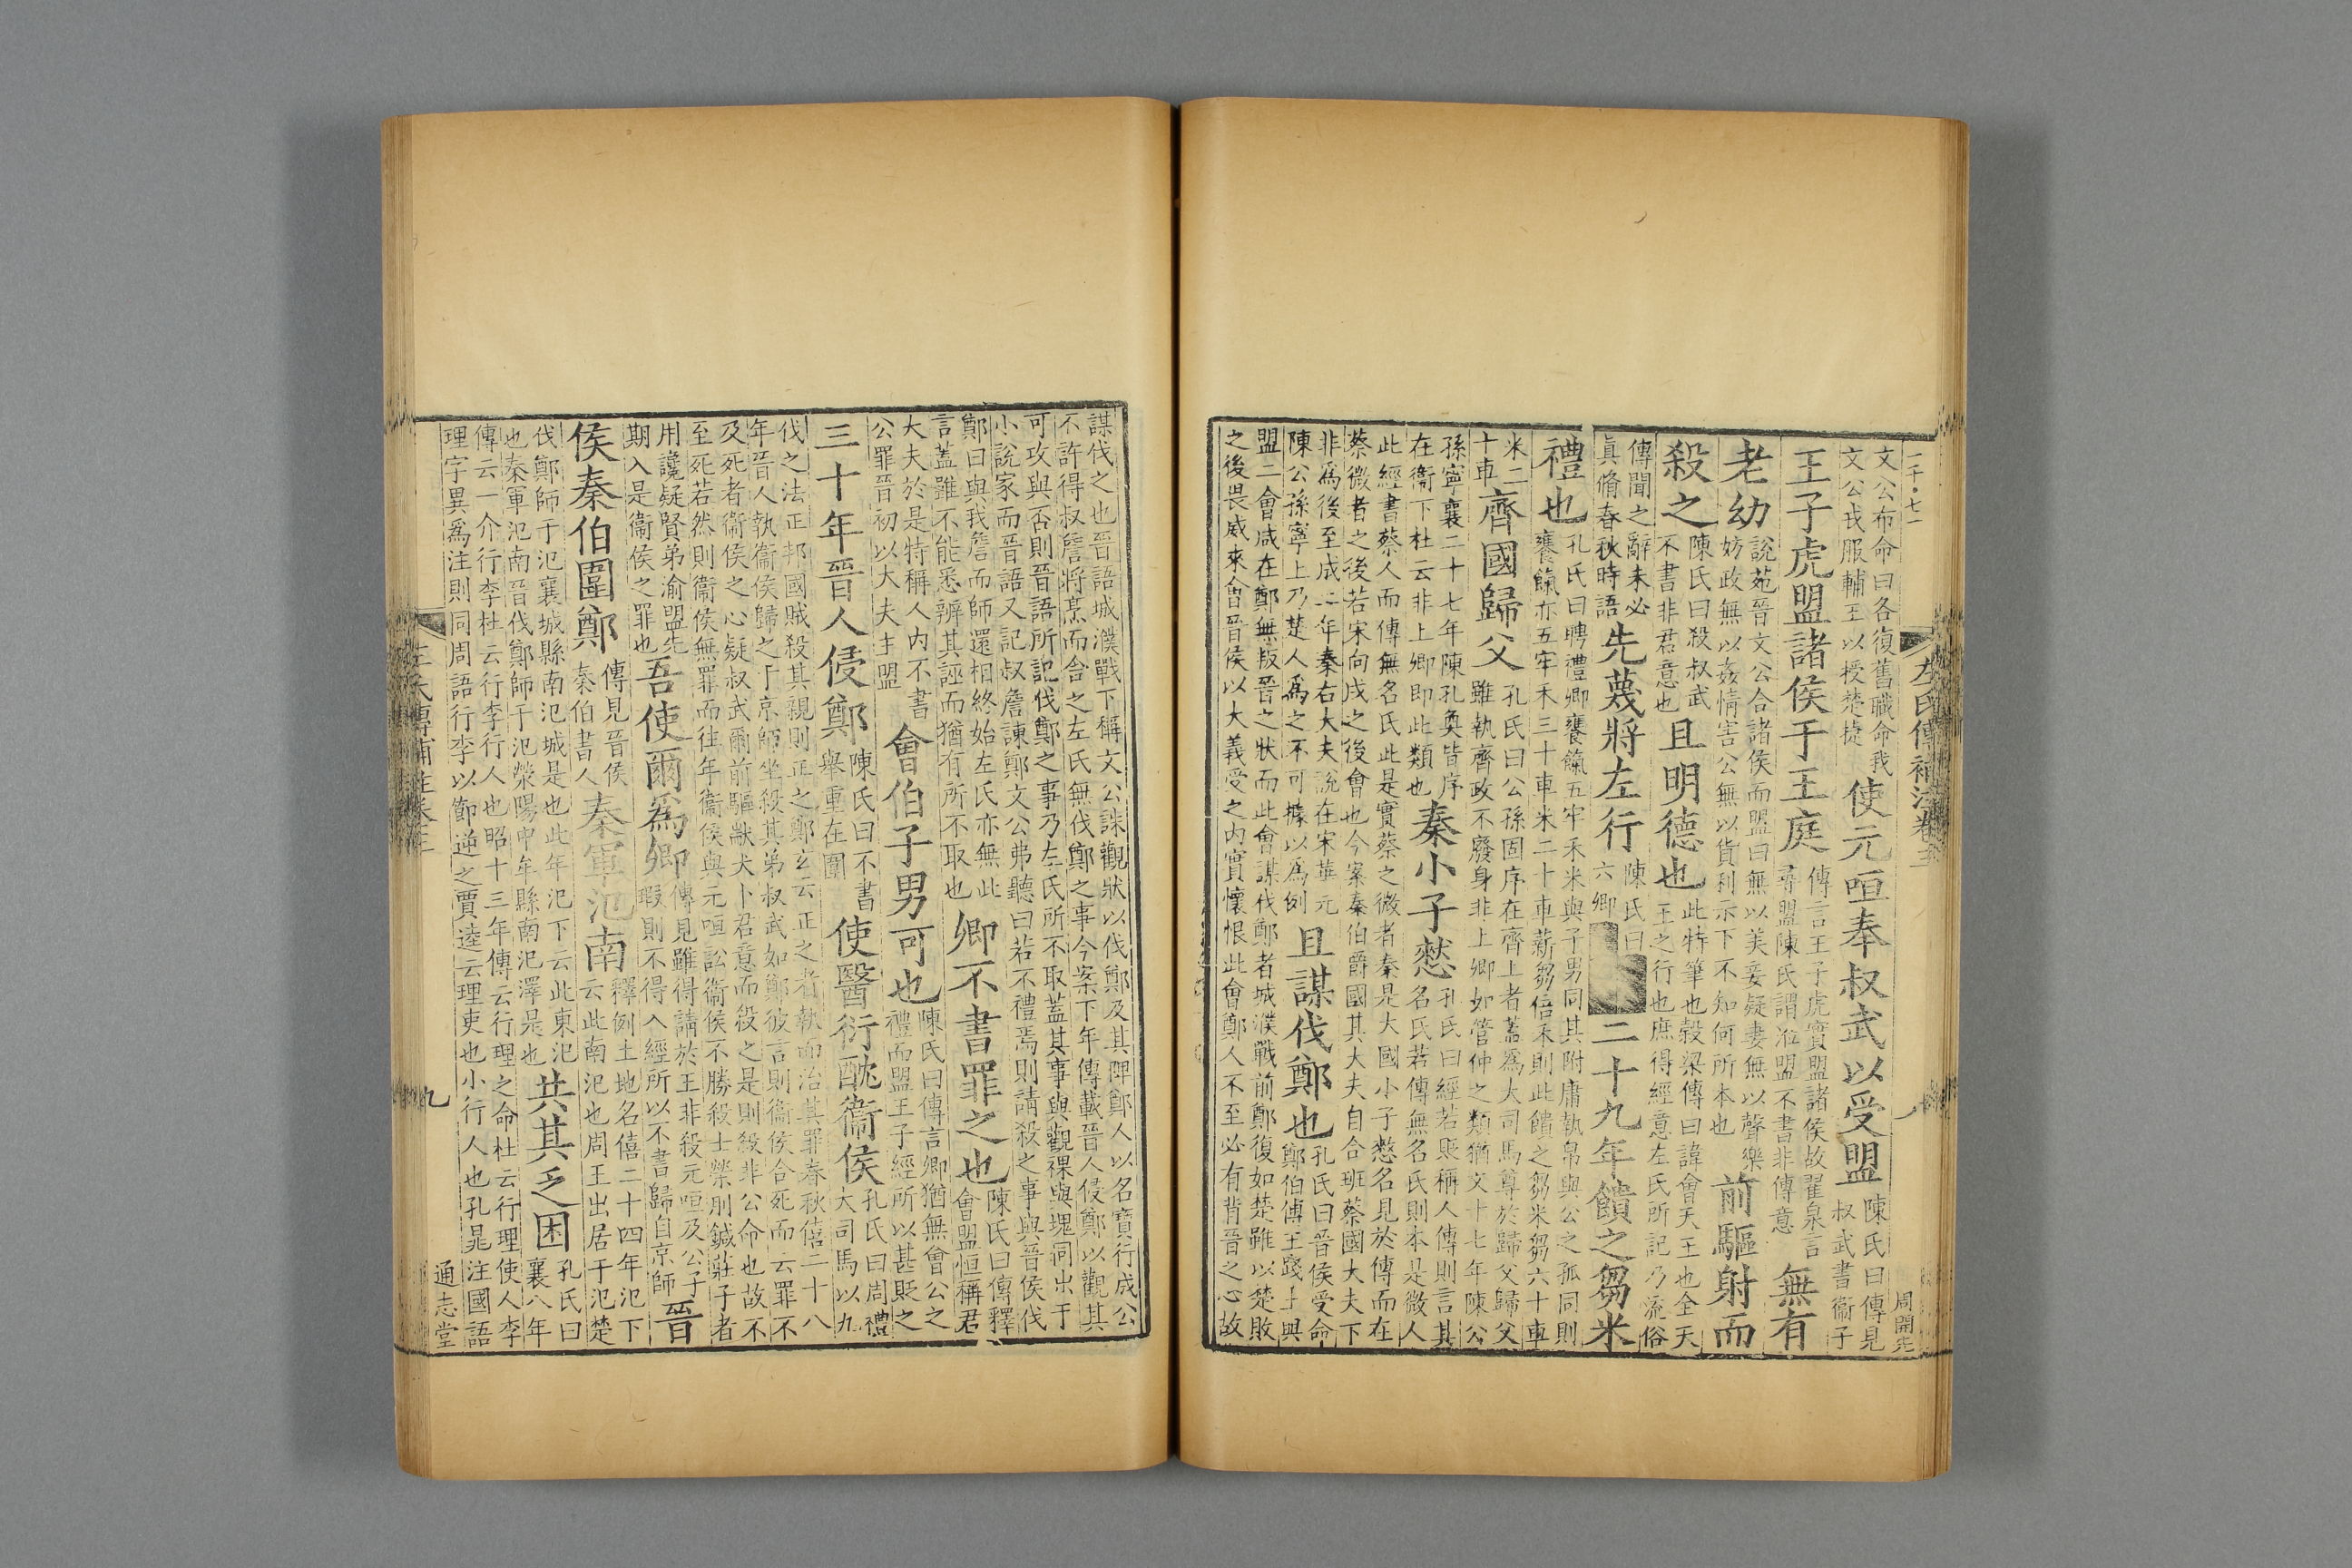 二千七一
左氏傳補注卷三
周開先
文公布命曰各復舊職命我
文公戎服輔王以授楚捷
使元咺奉叔武以受盟
陳氏曰傳見
叔武書衞子
王子虎盟諸侯于王庭
傳言王子虎實盟諸侯故翟泉言
尋盟陳氏謂涖盟不書非傳意
無有
老幼
說苑晉文公合諸侯而盟曰無以美妾疑妻無以聲樂
妨政無以姦情害公無以貨利示下不知何所本也
前驅射而
殺之
陳氏曰殺叔武
不書非君意也
且明德也
此特筆也穀梁傳曰諱會天王也全天
王之行也庶得經意左氏所記乃流俗
傳聞之辭未必
眞脩春秋時語
先蔑將左行
陳氏曰
六卿
二十九年饋之芻米
禮也
孔氏曰聘禮卿饔餼五牢禾米與子男同其附庸執帛與公之孤同則
饔餼亦五牢禾三十車米二十車薪芻倍禾則此饋之芻米芻六十車
米二
十車
齊國歸父
孔氏曰公孫固序在齊上者蓋爲大司馬尊於歸父歸父
雖執齊政不廢身非上卿如管仲之類猶文十七年陳公
孫寧襄二十七年陳孔奐皆序
在衞下杜云非上卿即此類也
秦小子憖
孔氏曰經若貶稱人傳則言其
名氏若傳無名氏則本是微人
此經書蔡人而傳無名氏此是實蔡之微者秦是大國小子憖名見於傳而在
蔡微者之後若宋向戌之後會也今案秦伯爵國其大夫自合班蔡國大夫下
非爲後至成二年秦右大夫說在宋華元
陳公孫寧上乃楚人爲之不可據以爲例
且謀伐鄭也
孔氏曰晉侯受命
鄭伯傅王踐土與
盟二會咸在鄭無叛晉之狀而此會謀伐鄭者城濮戰前鄭復如楚雖以楚敗
之後畏威來會晉侯以大義受之內實懷恨此會鄭人不至必有背晉之心故
謀伐之也晉語城濮戰下稱文公誅觀狀以伐鄭及其陴鄭人以名寶行成公
不許得叔詹將烹而舍之左氏無伐鄭之事今案下年傳載晉人侵鄭以觀其
可攻與否則晉語所記伐鄭之事乃左氏所不取蓋其事與觀裸與塊同出于
小說家而晉語又記叔詹諫鄭文公弗聽曰若不禮焉則請殺之事與晉侯伐
鄭曰與我詹而師還相終始左氏亦無此
言蓋雖不能悉辨其誣而猶有所不取也
卿不書罪之也
陳氏曰傳釋
會盟恒稱君
大夫於是特稱人內不書
公罪晉初以大夫主盟
會伯子男可也
陳氏曰傳言卿猶無會公之
禮而盟王子經所以甚貶之
三十年晉人侵鄭
陳氏曰不書
舉重在圍
使醫衍酖衞侯
孔氏曰周禮
大司馬以九
伐之法正邦國賊殺其親則正之鄭玄云正之者執而治其罪春秋僖二十八
年晉人執衞侯歸之于京師坐殺其弟叔武如鄭彼言則衞侯合死而云罪不
及死者衞侯之心疑叔武爾前驅歂犬卜君意而殺之是則殺非公命也故不
至死若然則衞侯無罪而往年衞侯與元咺訟衞侯不勝殺士榮刖鍼莊子者
用讒疑賢弟渝盟先
期入是衞侯之罪也
吾使爾爲卿
傳見雖得請於王非殺元咺及公子
瑕則不得入經所以不書歸自京師
晉
侯秦伯圍鄭
傳見晉侯
秦伯書人
秦軍氾南
釋例土地名僖二十四年氾下
云此南氾也周王出居于氾楚
伐鄭師于氾襄城縣南氾城是也此年氾下云此東氾
也秦軍氾南晉伐鄭師于氾滎陽中牟縣南氾澤是也
共其乏困
孔氏曰
襄八年
傳云一介行李杜云行李行人也昭十三年傳云行理之命杜云行理使人李
理字異爲注則同周語行李以節逆之賈逵云理吏也小行人也孔晁注國語
左氏傳補注卷三
九
通志堂